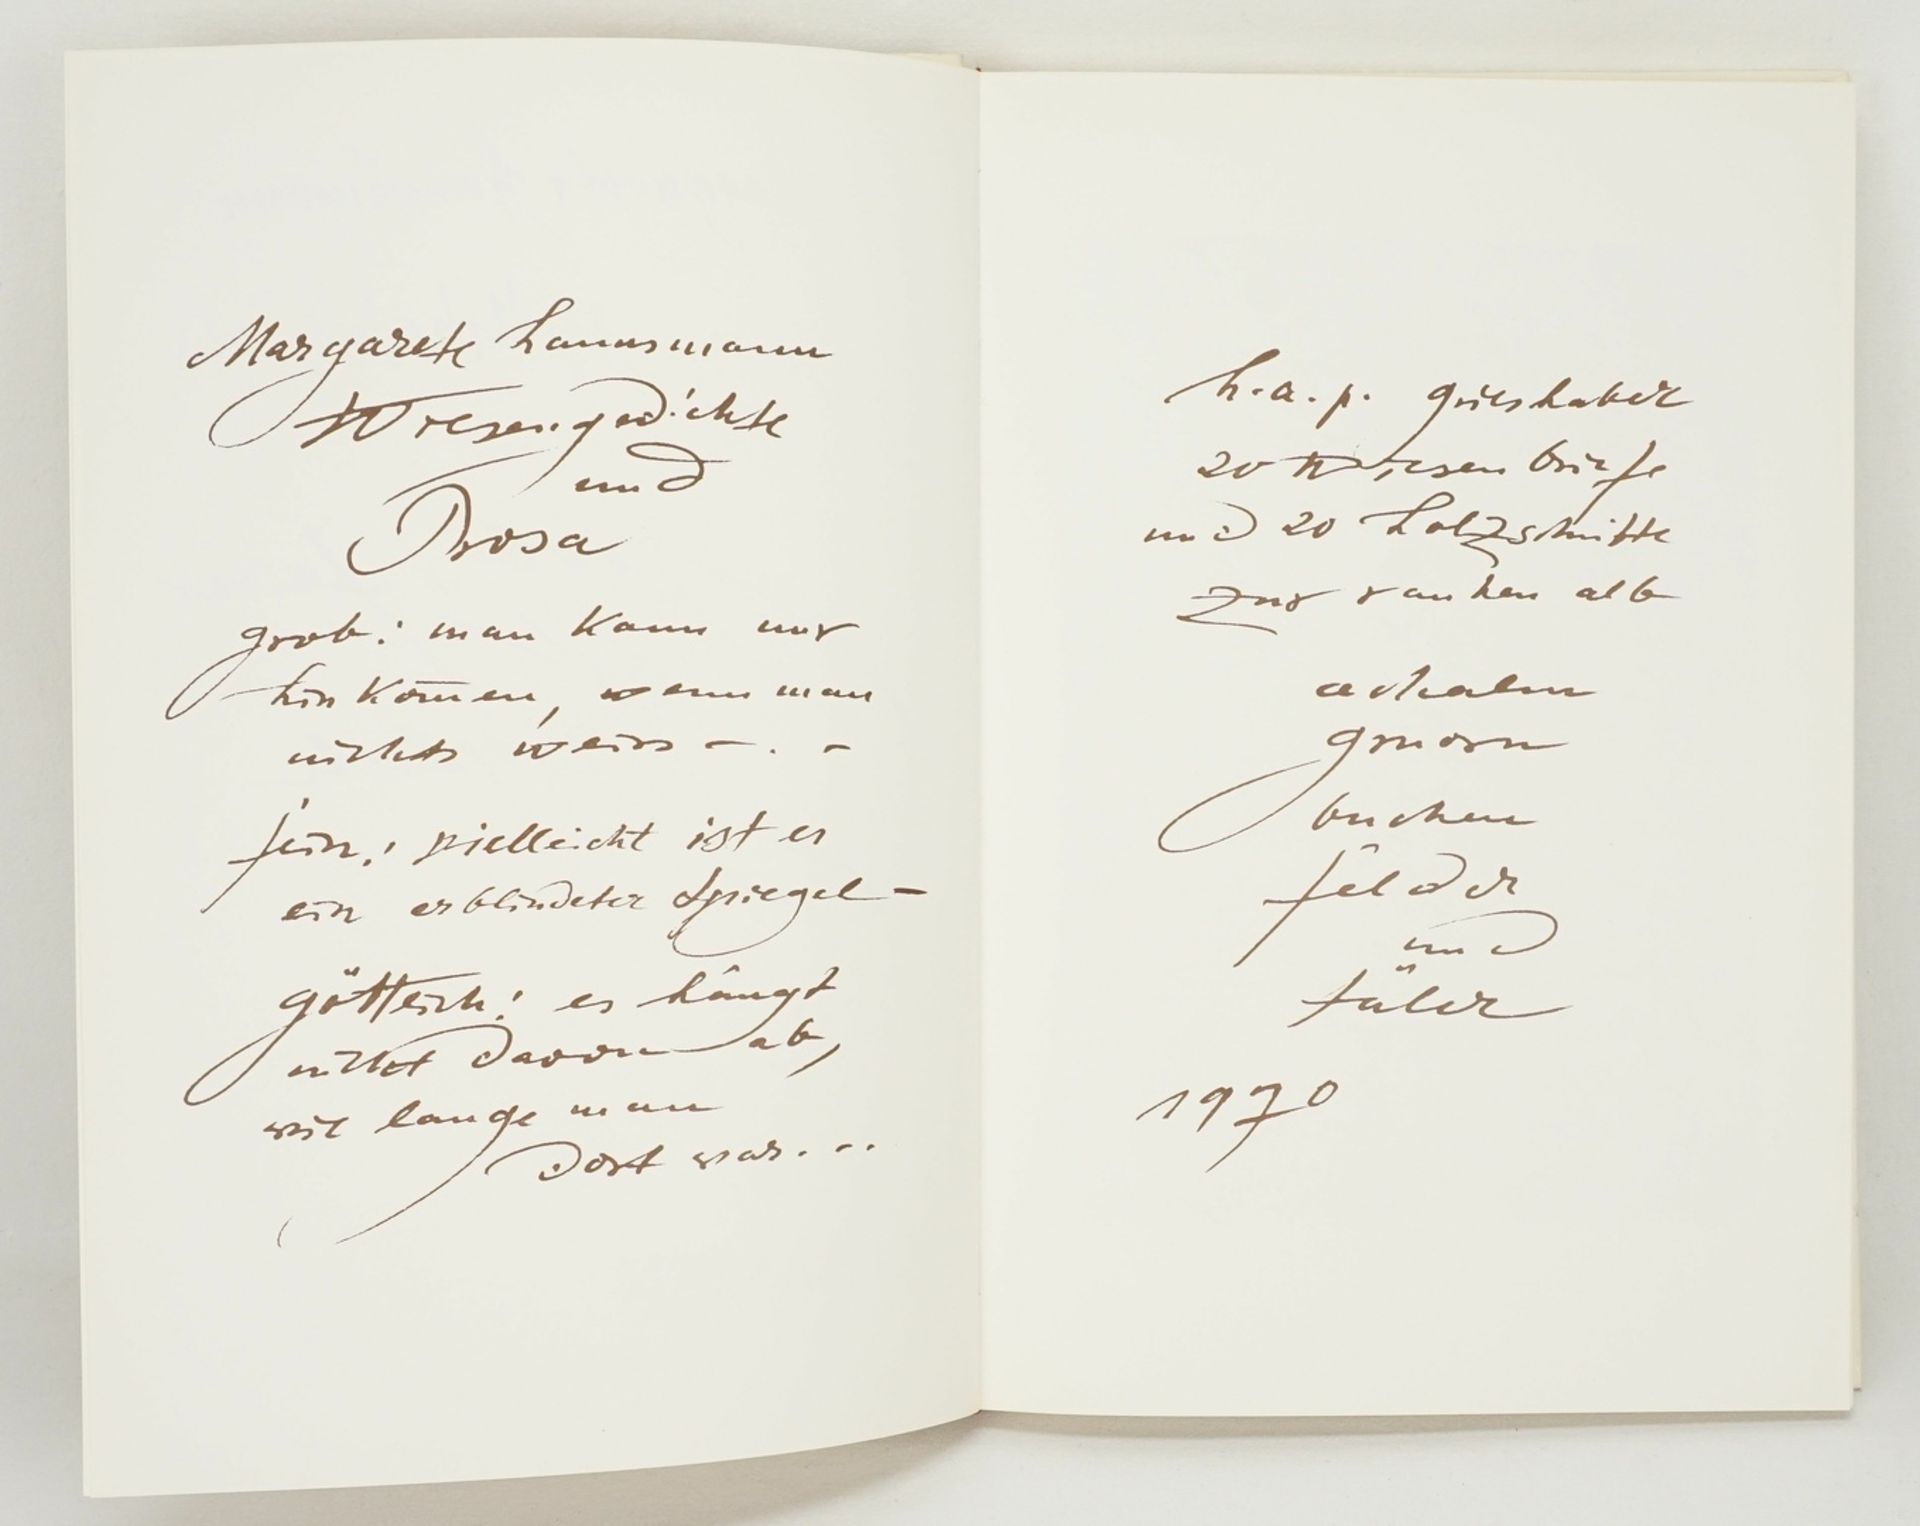 Margarete Hannsmann
Wiesengedichte
und
Prosa
grob: man kann nur
hin kom̄en, wenn man
nichts weiss – . –
fein: vielleicht ist es
ein erblindeter Spiegel –
göttlich: es hängt
nicht davon ab,
wie lange man
dort war...
h.a.p. grieshaber
20 Wiesenbriefe
und 20 holzschnitte
zur rauhen alb
achalm
gruorn
buchen
felder
und
täler
1970